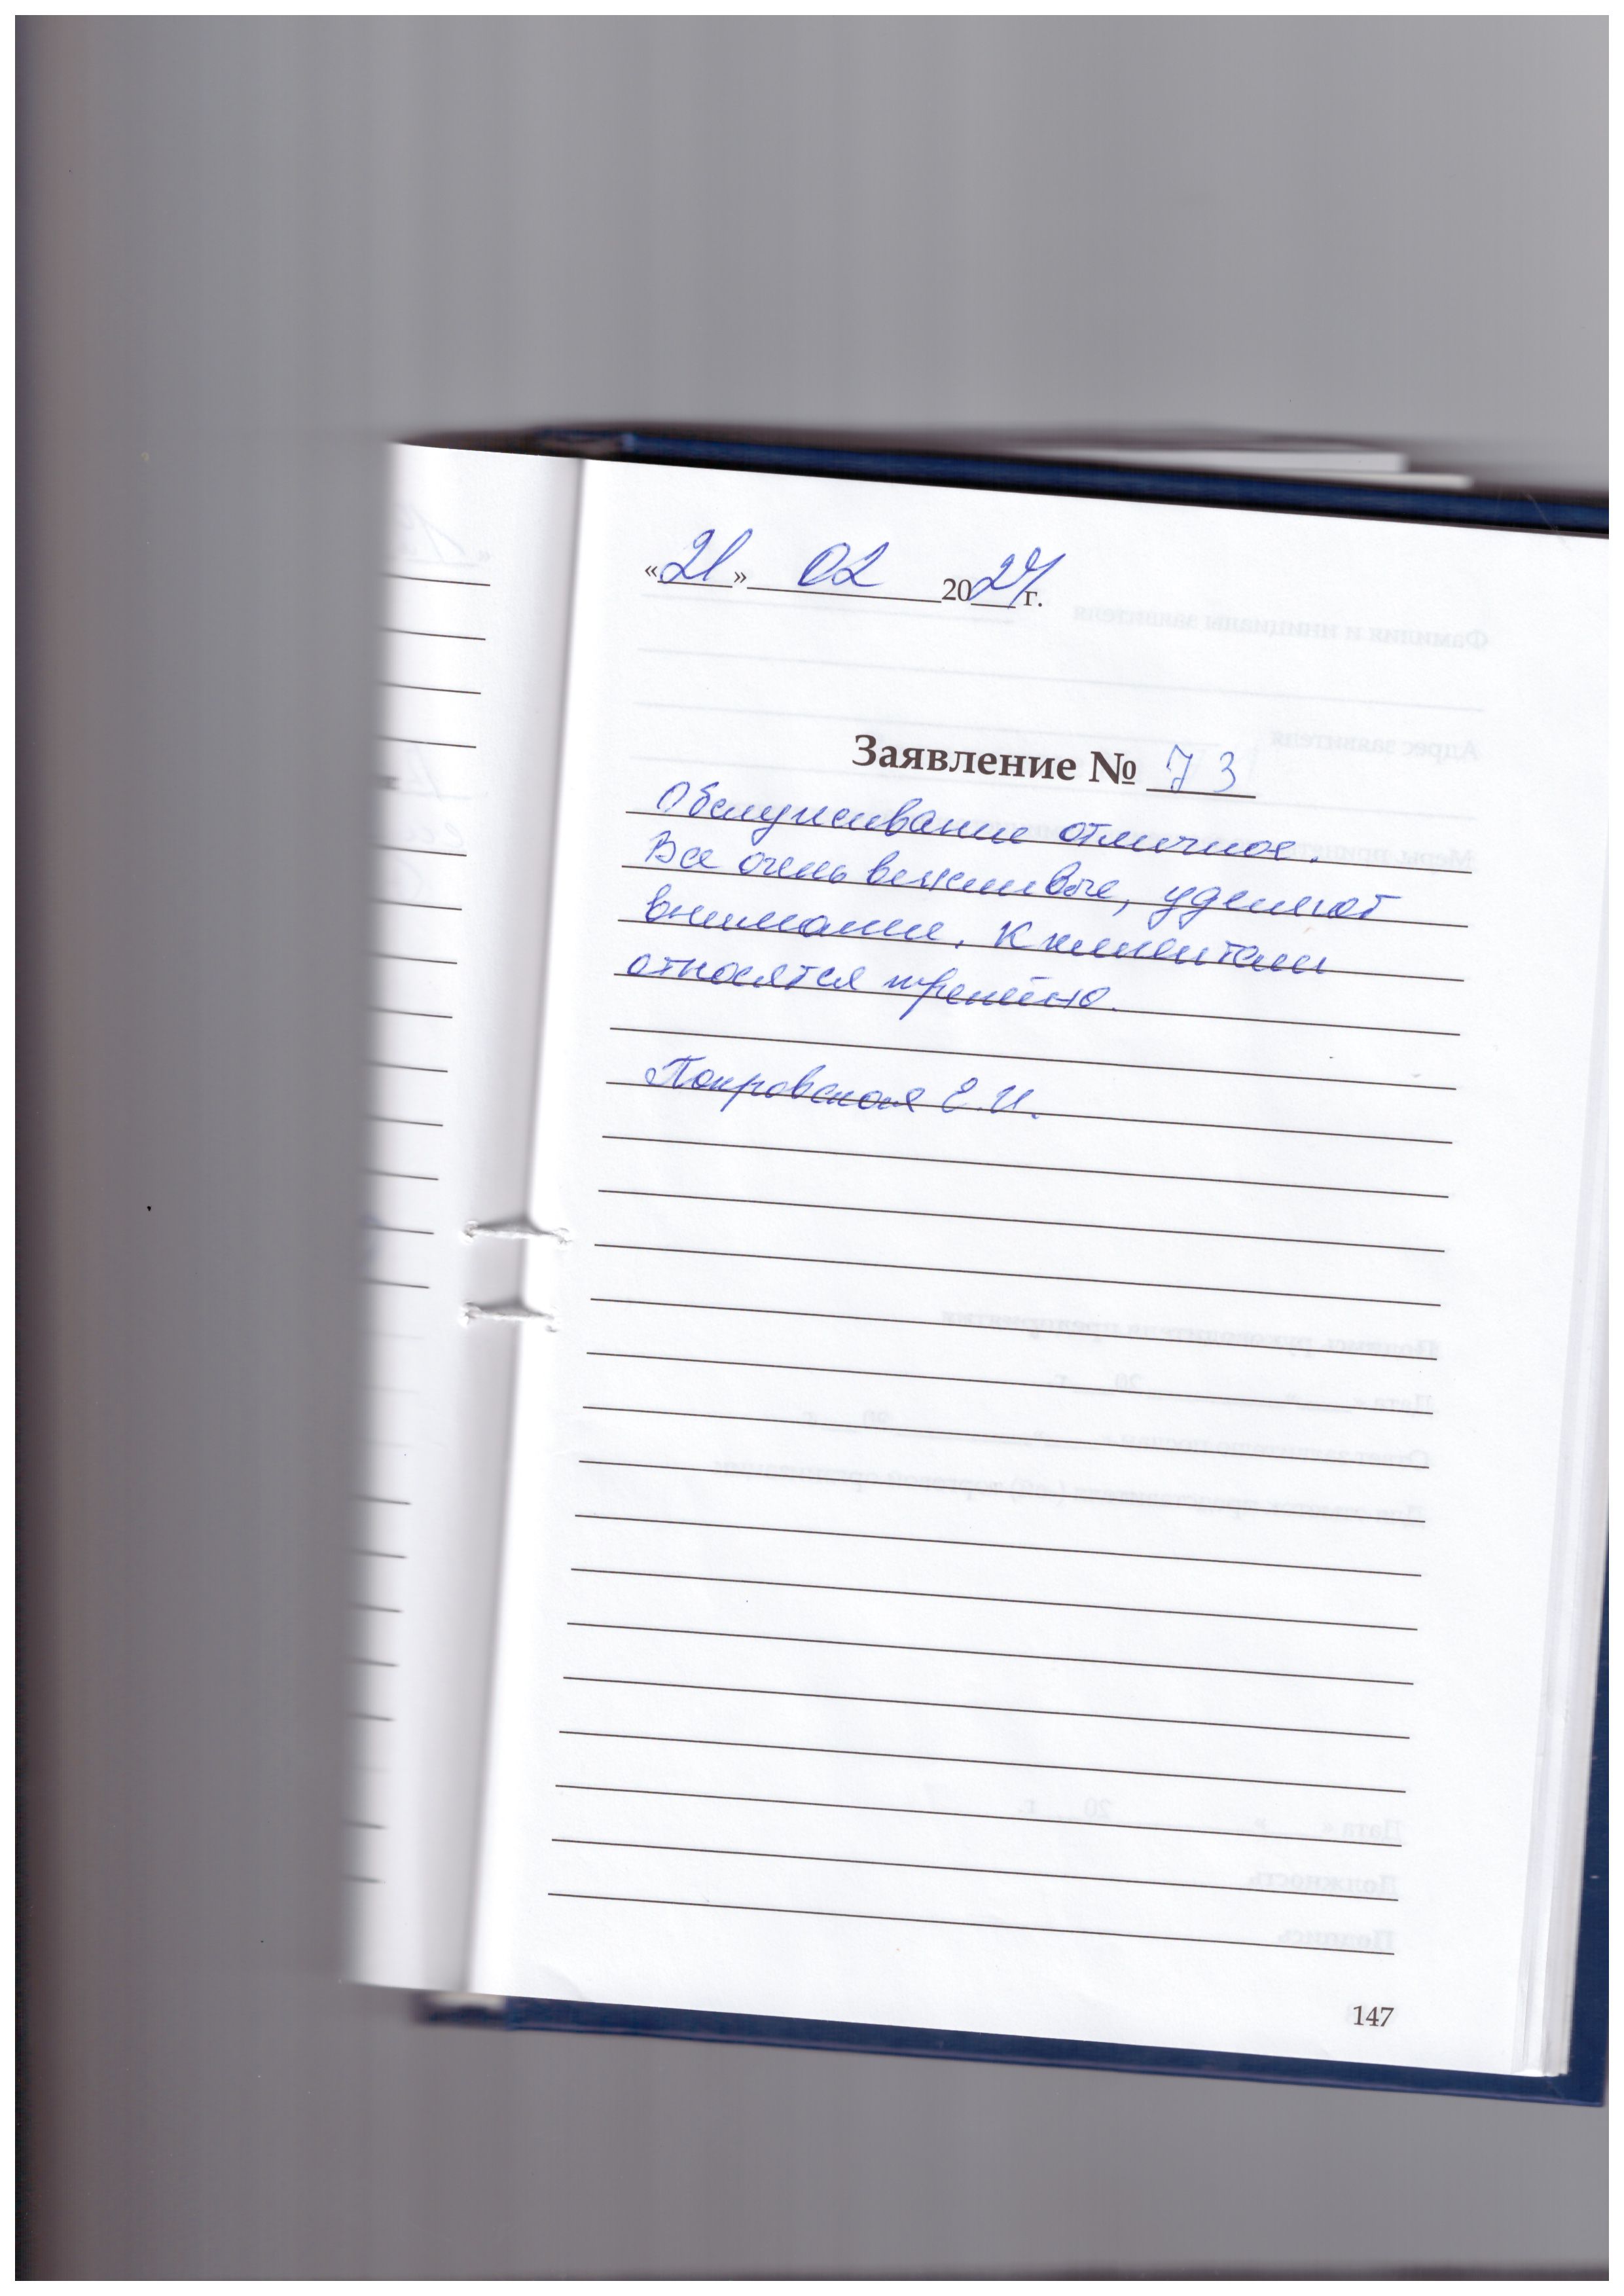 «21» 02 2024 г.
Заявление № 73
Обслуживание отличное.
Все очень вежливые, уделяют
внимание. К клиентам
относятся трепетно.
Покровская Е.И.
147